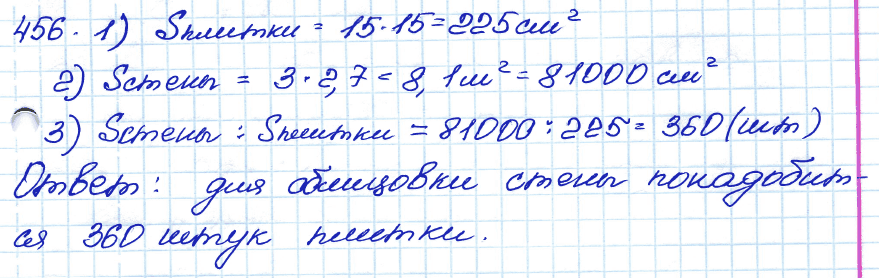 456. 1) Sплитки = 15·15=225см²
2) Sстены = 3·2,7=8,1м²=81000см²
3) Sстены : Sплитки = 81000:225=360(шт)
Ответ: для облицовки стены понадобит-
ся 360 штук плитки.